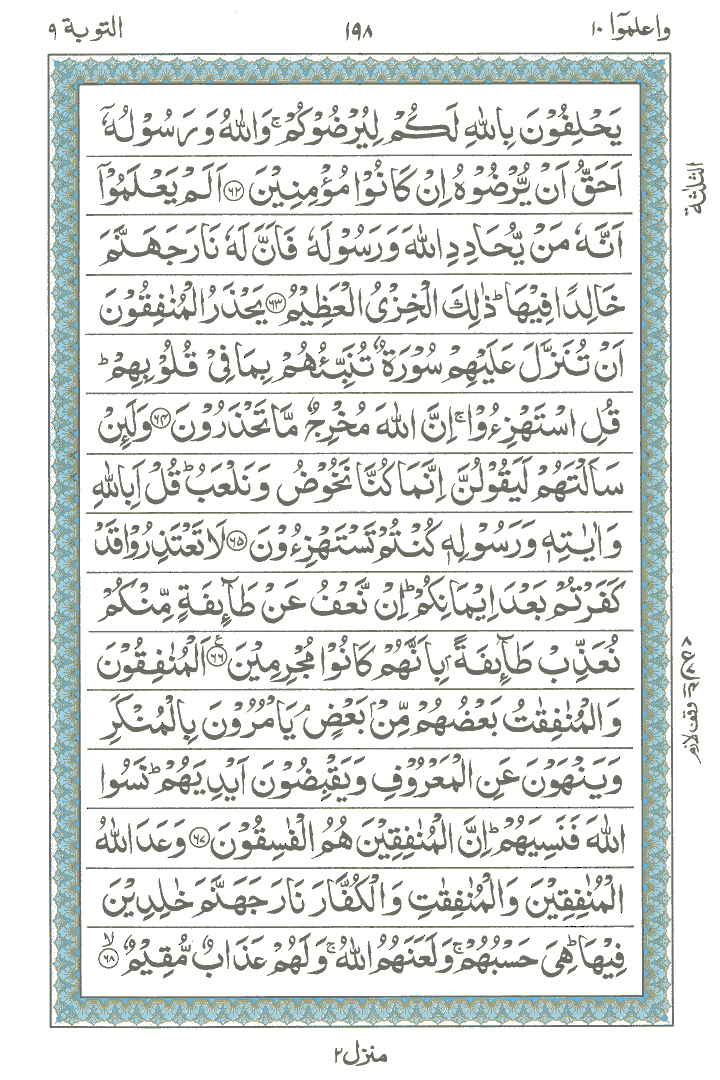 واعلموآ ١٠
١٩٨
التوبة ٩
يَحْلِفُوْنَ بِاللّٰهِ لَكُمْ لِيُرْضُوْكُمْ ۚ وَاللّٰهُ وَرَسُوْلُهٗۤ
اَحَقُّ اَنْ يُّرْضُوْهُ اِنْ كَانُوْا مُؤْمِنِيْنَ ﴿٦٢﴾ اَلَمْ يَعْلَمُوْۤا
اَنَّهٗ مَنْ يُّحَادِدِ اللّٰهَ وَرَسُوْلَهٗ فَاَنَّ لَهٗ نَارَ جَهَنَّمَ
خَالِدًا فِيْهَا ؕ ذٰلِكَ الْخِزْىُ الْعَظِيْمُ ﴿٦٣﴾ يَحْذَرُ الْمُنٰفِقُوْنَ
اَنْ تُنَزَّلَ عَلَيْهِمْ سُوْرَةٌ تُنَبِّئُهُمْ بِمَا فِىْ قُلُوْبِهِمْ ؕ
قُلِ اسْتَهْزِءُوْا ۚ اِنَّ اللّٰهَ مُخْرِجٌ مَّا تَحْذَرُوْنَ ﴿٦٤﴾ وَلَئِنْ
سَاَلْتَهُمْ لَيَقُوْلُنَّ اِنَّمَا كُنَّا نَخُوْضُ وَنَلْعَبُ ؕ قُلْ اَبِاللّٰهِ
وَاٰيٰتِهٖ وَرَسُوْلِهٖ كُنْتُمْ تَسْتَهْزِءُوْنَ ﴿٦٥﴾ لَا تَعْتَذِرُوْا قَدْ
كَفَرْتُمْ بَعْدَ اِيْمَانِكُمْ ؕ اِنْ نَّعْفُ عَنْ طَآئِفَةٍ مِّنْكُمْ
نُعَذِّبْ طَآئِفَةًۢ بِاَنَّهُمْ كَانُوْا مُجْرِمِيْنَ ﴿٦٦﴾ ع اَلْمُنٰفِقُوْنَ
وَالْمُنٰفِقٰتُ بَعْضُهُمْ مِّنْۢ بَعْضٍ ۘ يَاْمُرُوْنَ بِالْمُنْكَرِ
وَيَنْهَوْنَ عَنِ الْمَعْرُوْفِ وَيَقْبِضُوْنَ اَيْدِيَهُمْ ؕ نَسُوا
اللّٰهَ فَنَسِيَهُمْ ؕ اِنَّ الْمُنٰفِقِيْنَ هُمُ الْفٰسِقُوْنَ ﴿٦٧﴾ وَعَدَ اللّٰهُ
الْمُنٰفِقِيْنَ وَالْمُنٰفِقٰتِ وَالْكُفَّارَ نَارَ جَهَنَّمَ خٰلِدِيْنَ
فِيْهَا ؕ هِىَ حَسْبُهُمْ ۚ وَلَعَنَهُمُ اللّٰهُ ۚ وَلَهُمْ عَذَابٌ مُّقِيْمٌ ﴿٦٨﴾ ۙ
الثلثة
وقف لازم
منزل ٢